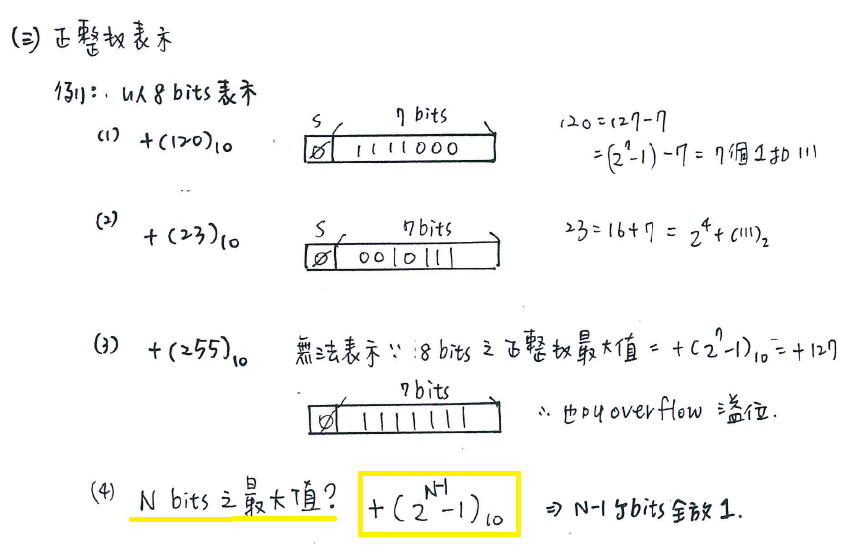 (三) 正整数表示
例:. 以8 bits表示
(1) +(120)10
S 7 bits
0 1111000
120=127-7
=(2^7-1)-7=7個1扣111
(2) +(23)10
S 7bits
0 0010111
23=16+7=2^4+(111)2
(3) +(255)10 無法表示∵8 bits之正整数最大值=+(2^7-1)10=+127
7bits
0 1111111
∴也叫overflow溢位.
(4) N bits之最大值? +(2^N-1 -1)10 ⇒ N-1个bits全放1.